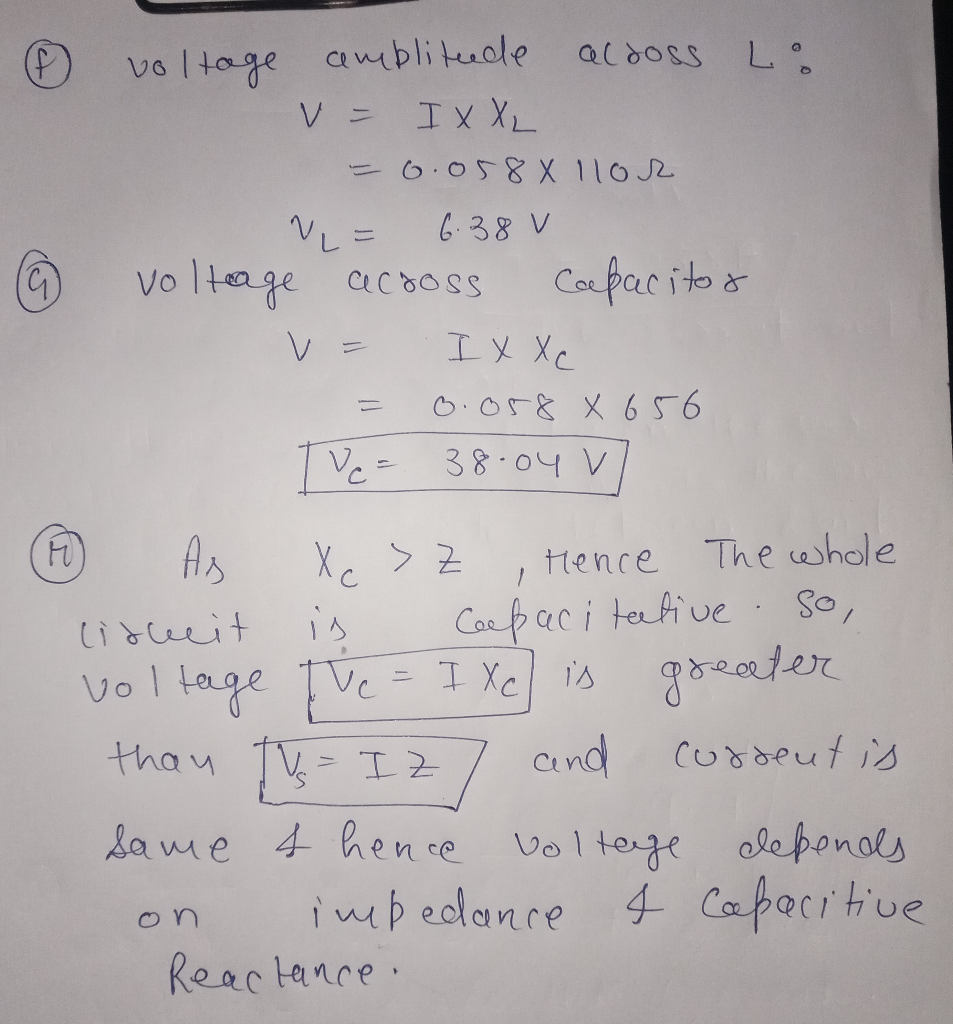 (f) voltage amplitude across L :
V = I X XL
= 0.058 X 110Ω
VL = 6.38 V
(G) voltage across Capacitor
V = I X Xc
= 0.058 X 656
Vc = 38.04 V
(H) As Xc > Z , Hence The whole
circuit is Capacitative . So,
voltage Vc = I Xc is greater
than Vs = I Z and current is
same & hence voltage depends
on impedance & Capacitive
Reactance.